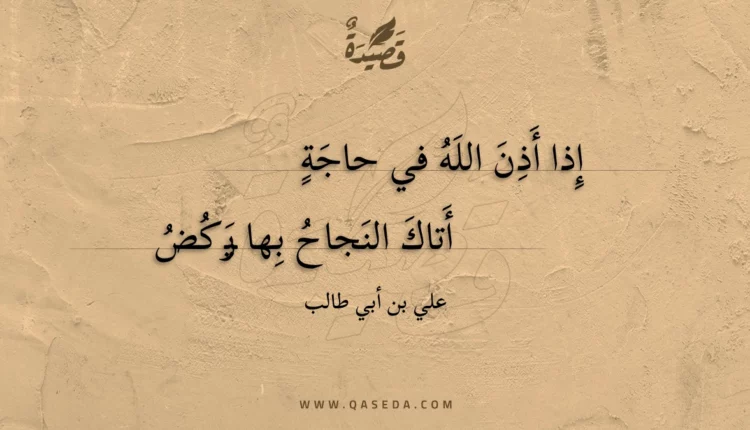 قَصِيدَةٌ
إِذا أَذِنَ اللَهُ في حاجَةٍ
أَتاكَ النَجاحُ بِها يَركُضُ
علي بن أبي طالب
WWW.QASEDA.COM